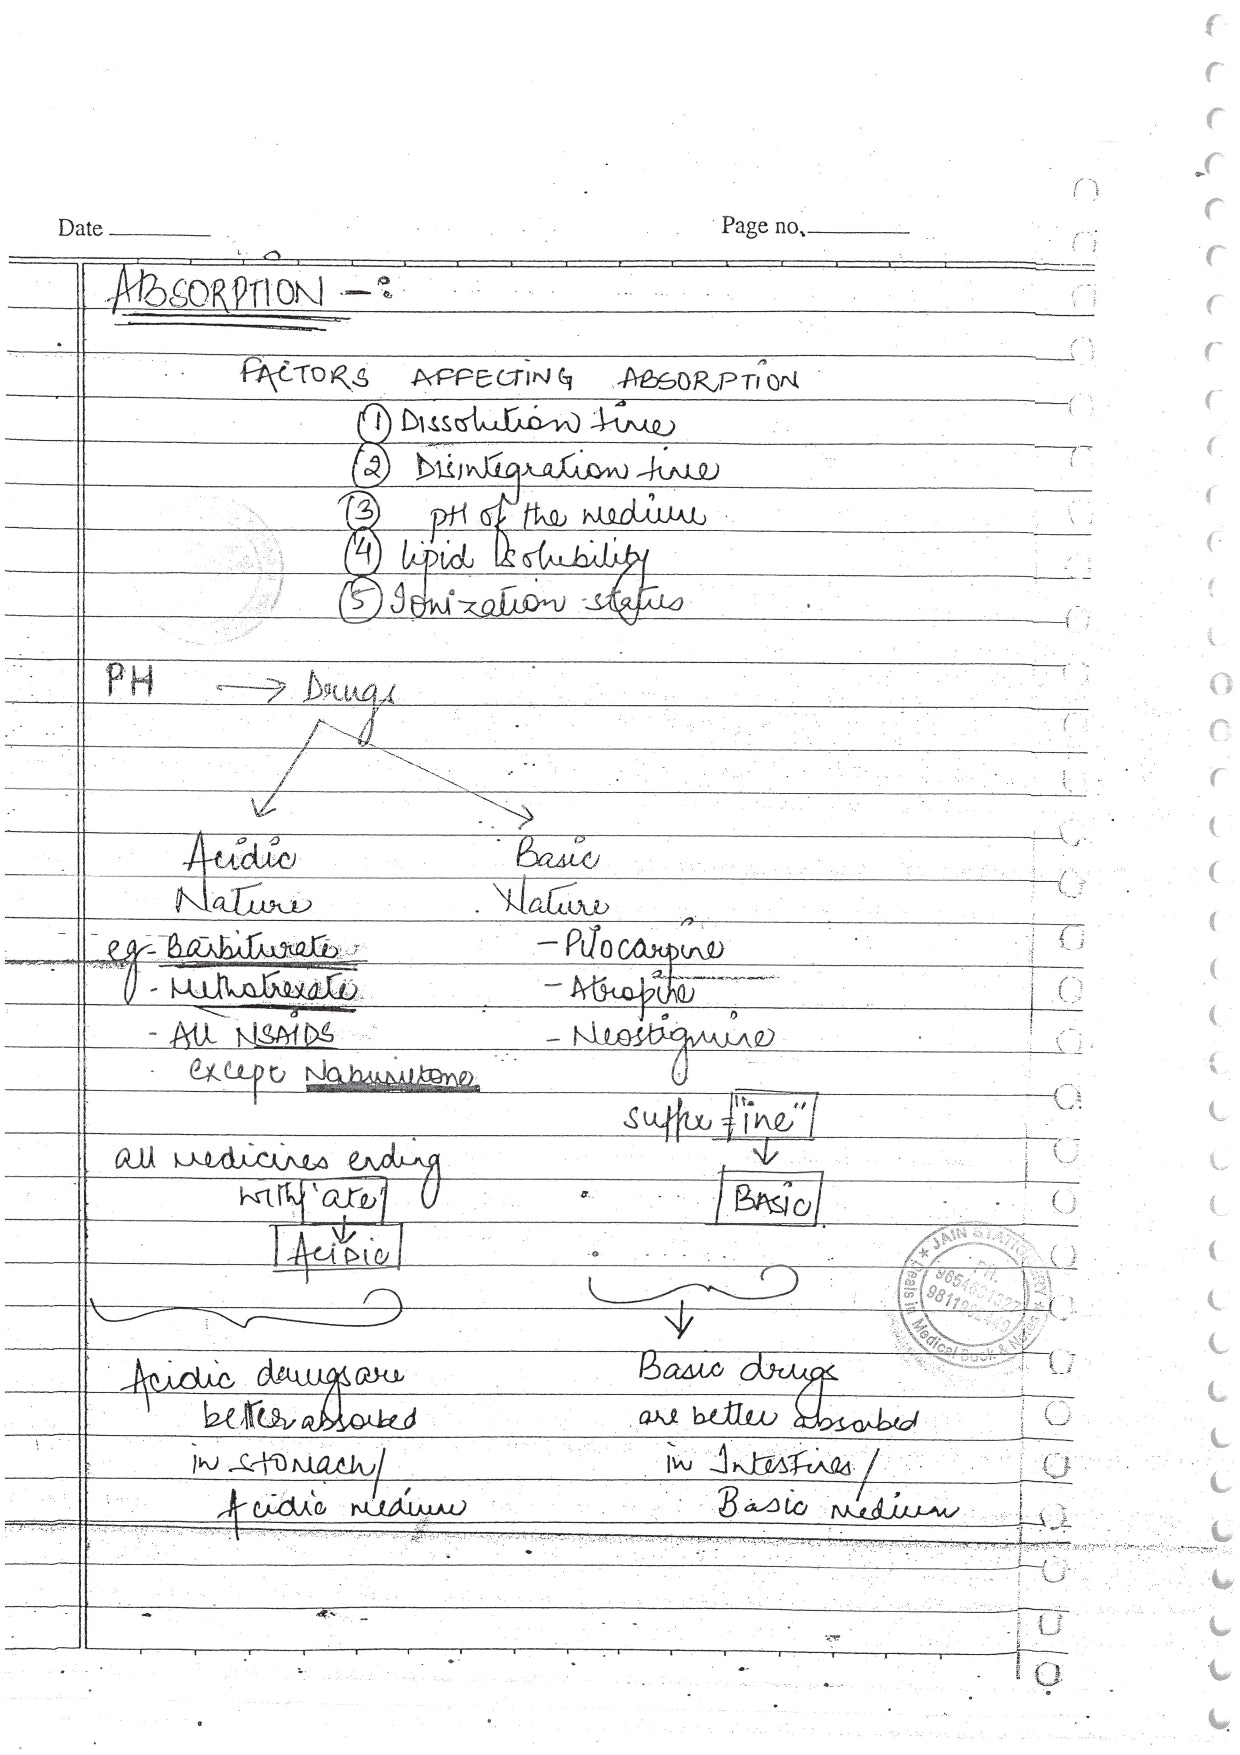 Date
Page no.
ABSORPTION -:
FACTORS AFFECTING ABSORPTION
① Dissolution time
② Disintegration time
③ pH of the medium
④ lipid solubility
⑤ Ionization status
PH → Drugs
Acidic Basic
Nature Nature
eg - Barbiturate - Pilocarpine
- Methotrexate - Atropine
- All NSAIDS - Neostigmine
except Nabumetone
suffix = "ine"
all medicines ending
with 'ate'
BASIC
Acidic
JAIN STATIONERY
PH.
Deals in Medical Book & Notes
Acidic drugs are Basic drugs
better absorbed are better absorbed
in stomach/ in Intestines/
Acidic medium Basic medium